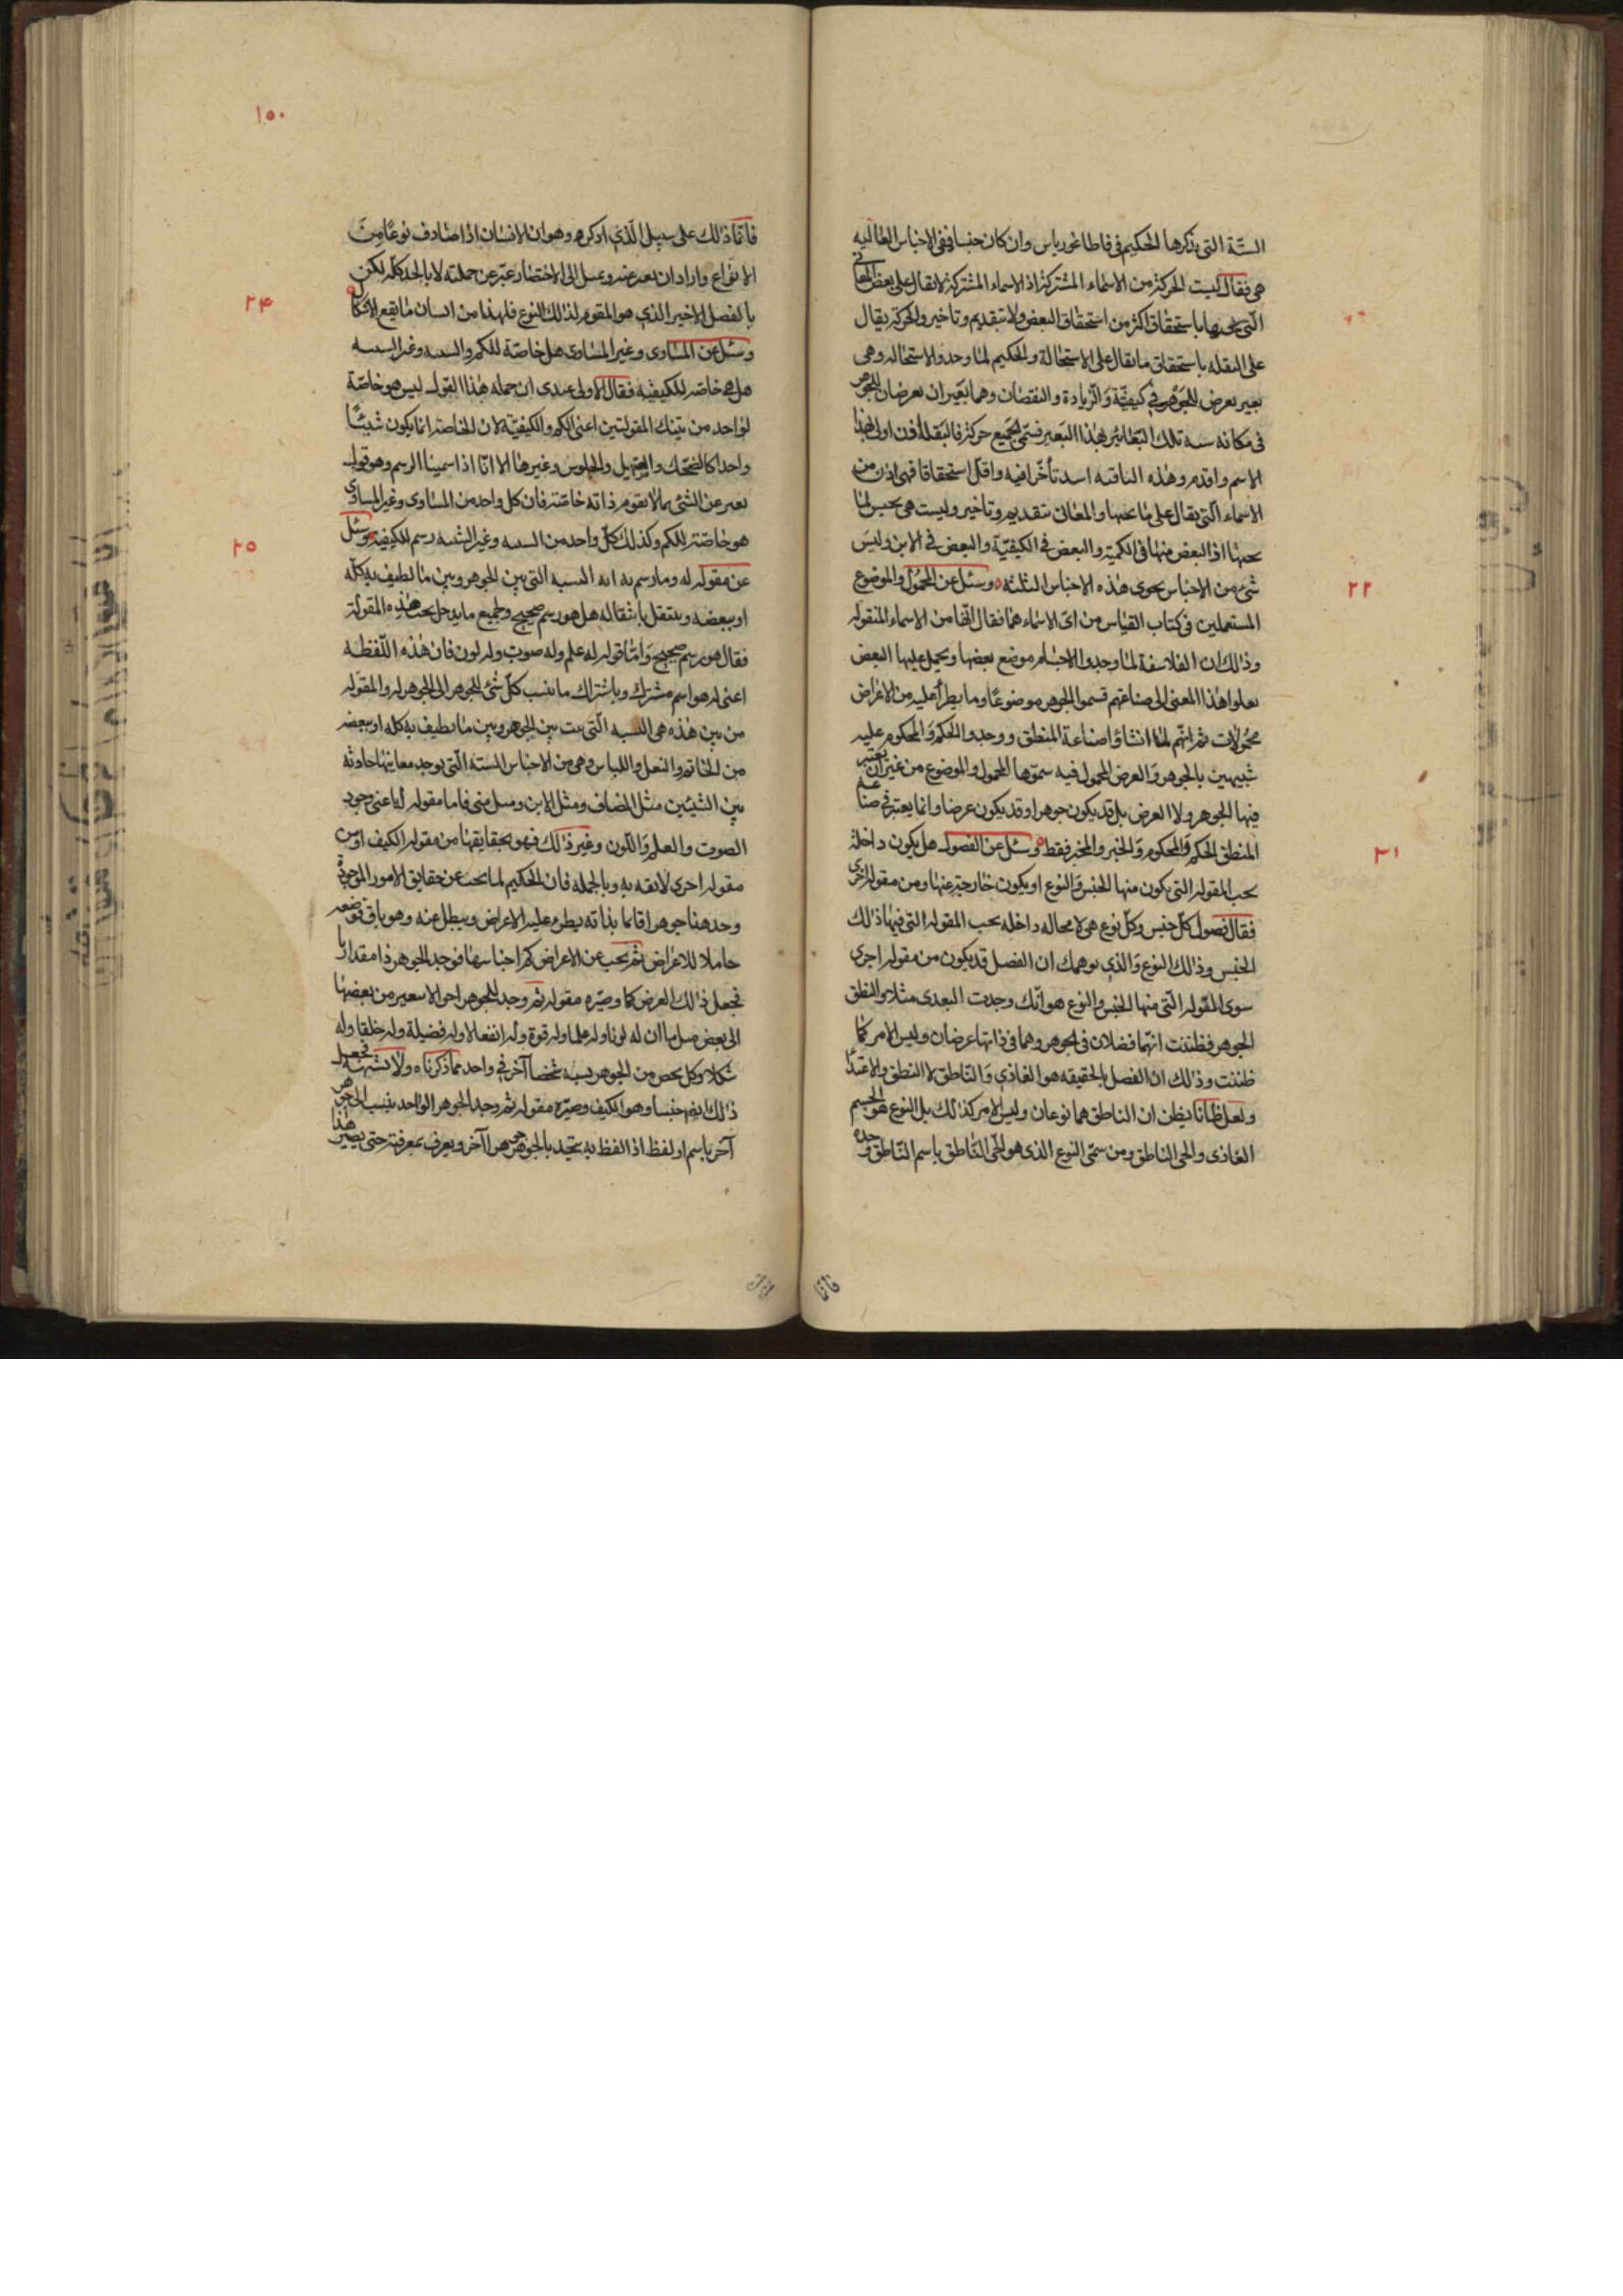 الستّة التى يذكرها الحكيم فى قاطاغورياس وان كان جنسا ففى الاجناس العالية
هى فقال ليست الحركة من الاسماء المشتركة اذ الاسماء المشتركة لا يقال على بعض المعانى
التى تحتها باستحقاق اكثر من استحقاق البعض ولا بتقديم وتاخير والحركة يقال
على النقله باستحقاق ما يقال على الاستحالة والحكيم لما وجد والاستحاله وهى
تغير يعرض للجوهر فى كيفيّة والزيادة والنقصان وهما تغيران يعرضان للجوهر
فى مكانه تلك التغاير هذا التغير فسمى الجميع حركة فالنقلة اذن اولى بهذا
الاسم واقدم وهذه الباقيه اشد تأخرا فيه واقل استحقاقا فهى اذن من
الاسماء التى يقال على ما تحتها والمعانى بتقديم وتاخير وليست هى بجنس لما
تحتها اذ البعض منها فى الكمية والبعض فى الكيفيّة والبعض فى الاين وليس
شىء من الاجناس يحوى هذه الاجناس الثلثه وسئل عن المحمول والموضوع
المستعملين فى كتاب القياس من اىّ الاسماء هما فقال انهما من الاسماء المنقوله
وذلك ان الفلاسفة لما وجدوا الاجسام موضع بعضها ويحمل عليها البعض
نقلوا هذا المعنى الى صناعتهم فسموا الجوهر موضوعا وما يطرأ عليه من الاعراض
محمولات ثم انّهم لما انشاؤا صناعة المنطق ووجدوا الحكم والمحكوم عليه
شبيهين بالجوهر والعرض المحمول فيه سموها المحمول والموضوع من غير ان يعتبر
فيها الجوهر ولا العرض بل قد يكون جوهرا وقد يكون عرضا وانما يعتبر فى صناعه
المنطق الحكم والمحكوم والخبر والمخبر فقط وسئل عن الفصول هل يكون داخلة
تحت المقوله التى يكون منها الجنس والنوع او يكون خارجة عنها ومن مقولة اخرى
فقال فصول كل جنس وكل نوع هى لا محاله داخله تحت المقوله التى فيها ذلك
الجنس وذلك النوع والذى يوهمك ان الفصل قد يكون من مقوله اخرى
سوى المقوله التى منها الجنس والنوع هو انّك وجدت التغذى مثلا والنطق
الجوهر فظننت انهما فصلان فى الجوهر وهما فى ذاتهما عرضان وليس الامر كما
ظننت وذلك ان الفصل بالحقيقه هو الغاذى والناطق لا النطق والاغتذا
ولعل ظانا يظن ان الناطق هما نوعان وليس الامر كذلك بل النوع هو الجسم
الغاذى والحى الناطق ومن سمّى النوع الذى هو الحى الناطق باسم الناطق وحده
فانما
١٥٠
٢٢
٢٣
فانما ذلك على سبيل الّذى اذكره وهو ان الانسان اذا صادف نوعا من
الانواع واراد ان يعبر عنه ويميل الى الاختصار عبّر عن جملته لا بالحد كله لكن
بالفصل الاخير الذى هو المقوم لذلك النوع فلهذا من انسان ما يقع الاشكال
وسئل عن المساوى وغير المساوى هل خاصّة للكم والشبيه وغير الشبيه
هل هى خاصّة للكيفيّه فقال الاولى عندى ان جمله هذا القول ليس هو خاصّة
لواحد من تينك المقولتين اعنى الكم والكيفيّة لان الخاصة انما يكون شيئًا
واحدا كالضحك والصهيل والجلوس وغيرها الا انّا اذا سمينا الرسم وهو قول
يعبر عن الشئ بما لا يقوم ذاته خاصّة فان كل واحد من المساوى وغير المساوى
هو خاصّة للكم وكذلك كلّ واحد من الشبيه وغير الشبيه رسم للكيفيه وسئل
عن مقوله له وما رسم به انه النسبه التى بين الجوهر وبين ما يطيف به كله
او ببعضه وينتقل بانتقاله هل هو رسم صحيح ولجميع ما يدخل تحت هذه المقولة
فقال هو رسم صحيح وامّا قوله له علم وله صوت وله لون فان هذه اللفظه
اعنى له هو اسم مشترك وباشتراك ما ينسب كلّ شئ للجوهر الى الجوهر له والمقوله
من بين هذه هى النسبه التى بين الجوهر وبين ما يطيف به كله او ببعضه
من الخاتم والنعل واللباس وهى من الاجناس الستّه الّتى يوجد معانيها حادثه
بين الشيئين مثل المضاف ومثل الاين ومثل متى فاما مقوله له اعنى وجود
الصوت والعلم واللون وغير ذلك فهو بحقايقها من مقوله الكيف او من
مقوله اخرى وبالجمله فان الحكيم لما بحث عن حقايق الامور الموجودة
وجد هنا جوهرا قائما بذاته يطرء عليه الاعراض ويبطل عنه وهو باق فوضعه
حاملا للاعراض ثم بحث عن الاعراض كم اجناسها فوجد الجوهر ذا مقدار ما
فجعل ذلك العرض كما وصيّره مقوله ثم وجد للجوهر احوالا يتغير من بعضها
الى بعض مثل ما ان له لونا وله علما وله قوة وله انفعالا وله فضيلة وله خلقا وله
شكلا وكل شخص من الجوهر يشبه شخصا آخر فى واحد مما ذكرناه ولا يشبهه فجعل
ذلك ايضا جنسا وهو الكيف وصيّره مقوله ثم وجد الجوهر الواحد ينسب الى جوهر
آخر باسم او لفظ اذا لفظ به يتحيّد بالجوهر جوهرا آخر ويعرف بمعرفته حتى يصير هذا
٢٤
٢٥